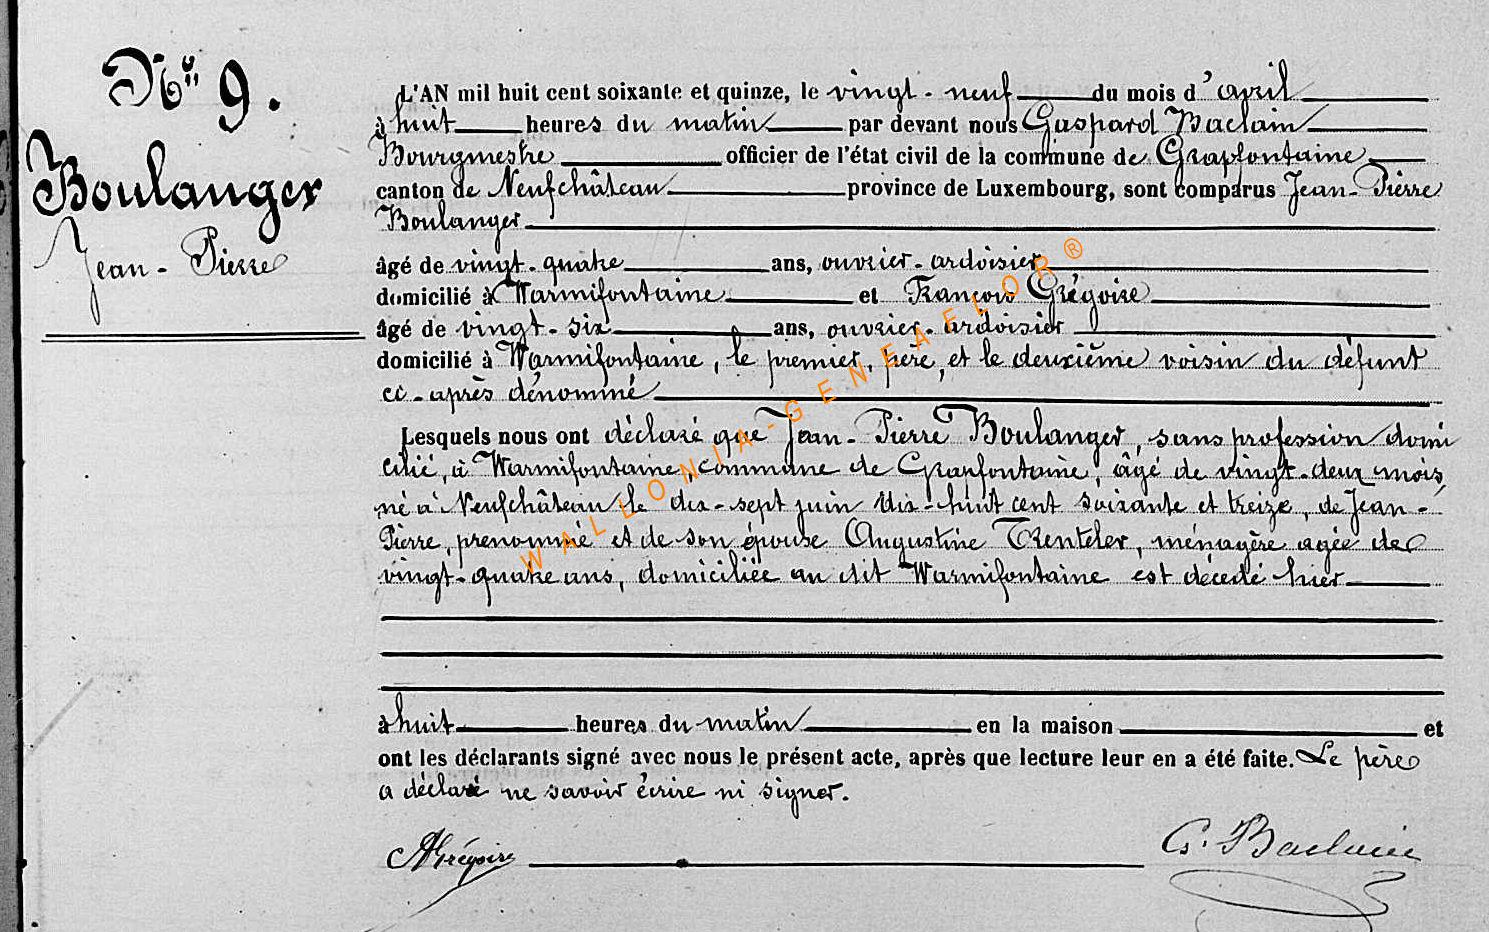 Nº 9.
Boulanger
Jean-Pierre
L'AN mil huit cent soixante et quinze, le vingt-neuf du mois d'avril
à huit heures du matin par devant nous Gaspard Baclain
Bourgmestre officier de l'état civil de la commune de Grapfontaine
canton de Neufchâteau province de Luxembourg, sont comparus Jean-Pierre
Boulanger
âgé de vingt-quatre ans, ouvrier-ardoisier
domicilié à Warmifontaine et François Grégoire
âgé de vingt-six ans, ouvrier-ardoisier
domicilié à Warmifontaine, le premier, père, et le deuxième voisin du défunt
ci-après dénommé
Lesquels nous ont déclaré que Jean-Pierre Boulanger, sans profession domi
cilié, à Warmifontaine, commune de Grapfontaine, âgé de vingt-deux mois,
né à Neufchâteau le dix-sept juin dix-huit cent soixante et treize, de Jean-
Pierre, prénommé et de son épouse Augustine Trenteler, ménagère agée de
vingt-quatre ans, domiciliée au dit Warmifontaine est décédé hier
à huit heures du matin en la maison et
ont les déclarants signé avec nous le présent acte, après que lecture leur en a été faite. Le père
a déclaré ne savoir écrire ni signer.
Grégoire G. Baclain
WALLONIA-GENEAELOR®